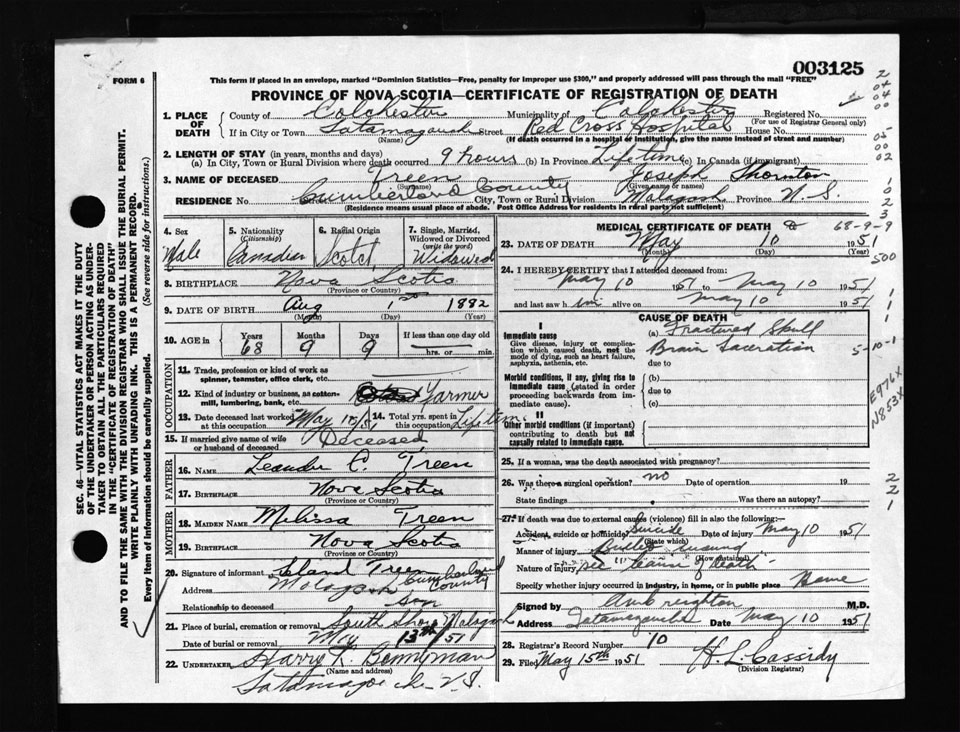 003125
FORM 6
This form if placed in an envelope, marked "Dominion Statistics—Free, penalty for improper use $300," and properly addressed will pass through the mail "FREE"
PROVINCE OF NOVA SCOTIA—CERTIFICATE OF REGISTRATION OF DEATH
1. PLACE OF DEATH
County of Colchester Municipality of Colchester Registered No.
(For use of Registrar General only)
If in City or Town Tatamagouch Street Red Cross Hospital House No.
(Name) (If death occurred in a hospital or institution, give the name instead of street and number)
2. LENGTH OF STAY (in years, months and days)
(a) In City, Town or Rural Division where death occurred 9 hours (b) In Province Lifetime (c) In Canada (if immigrant)
3. NAME OF DECEASED Treen Joseph Thornton
(Surname) (Given name or names)
RESIDENCE No Cumberland County City, Town or Rural Division Malagash Province N.S.
(Residence means usual place of abode. Post Office Address for residents in rural parts not sufficient)
4. Sex Male
5. Nationality (Citizenship) Canadian
6. Racial Origin Scotch
7. Single, Married, Widowed or Divorced (write the word) Widowed
8. BIRTHPLACE Nova Scotia
(Province or Country)
9. DATE OF BIRTH Aug 1st 1882
(Month) (Day) (Year)
10. AGE in Years 68 Months 9 Days 9 If less than one day old hrs. or min.
OCCUPATION
11. Trade, profession or kind of work as spinner, teamster, office clerk, etc.
12. Kind of industry or business, as cotton-mill, lumbering, bank, etc. Farmer
13. Date deceased last worked at this occupation May 10/51
14. Total yrs. spent in this occupation Lifetime
15. If married give name of wife or husband of deceased Deceased
FATHER
16. NAME Leander C. Treen
17. BIRTHPLACE Nova Scotia
MOTHER
18. MAIDEN NAME Melissa Treen
19. BIRTHPLACE Nova Scotia
(Province or Country)
20. Signature of informant Leland Treen
Address Malagash Cumberland County
Relationship to deceased Son
21. Place of burial, cremation or removal South Shore Malagash
Date of burial or removal May 13th/51
22. UNDERTAKER Harry R. Bonnyman
(Name and address)
Tatamagouche N.S.
MEDICAL CERTIFICATE OF DEATH
23. DATE OF DEATH May 10 1951
(Month) (Day) (Year)
24. I HEREBY CERTIFY that I attended deceased from:
May 10 1951 to May 10 1951
and last saw him alive on May 10 1951
CAUSE OF DEATH
I
Immediate cause
Give disease, injury or complication which caused death, not the mode of dying, such as heart failure, asphyxia, asthenia, etc.
(a) Fractured Skull
Brain Laceration
due to
Morbid conditions, if any, giving rise to immediate cause (stated in order proceeding backwards from immediate cause).
(b)
due to
(c)
II
Other morbid conditions (if important) contributing to death but not causally related to immediate cause
25. If a woman, was the death associated with pregnancy?
26. Was there a surgical operation? no Date of operation 19
State findings Was there an autopsy?
27. If death was due to external causes (violence) fill in also the following:—
Accident, suicide or homicide? Suicide Date of injury May 10 1951
(State which)
Manner of injury Bullet wound
(How sustained)
Nature of injury see "cause of death"
Specify whether injury occurred in industry, in home, or in public place Home
Signed by M.D.
Address Tatamagouche Date May 10 1951
28. Registrar's Record Number 10
29. Filed May 15th 1951 H. L. Cassidy
(Division Registrar)
SEC. 46—VITAL STATISTICS ACT MAKES IT THE DUTY
OF THE UNDERTAKER OR PERSON ACTING AS UNDER-
TAKER TO OBTAIN ALL THE PARTICULARS REQUIRED
IN THE "CERTIFICATE OF REGISTRATION OF DEATH"
AND TO FILE THE SAME WITH THE DIVISION REGISTRAR WHO SHALL ISSUE THE BURIAL PERMIT.
WRITE PLAINLY WITH UNFADING INK. THIS IS A PERMANENT RECORD.
Every item of information should be carefully supplied. (See reverse side for instructions.)
68-9-9
500
5-10-1
E976X
N853X